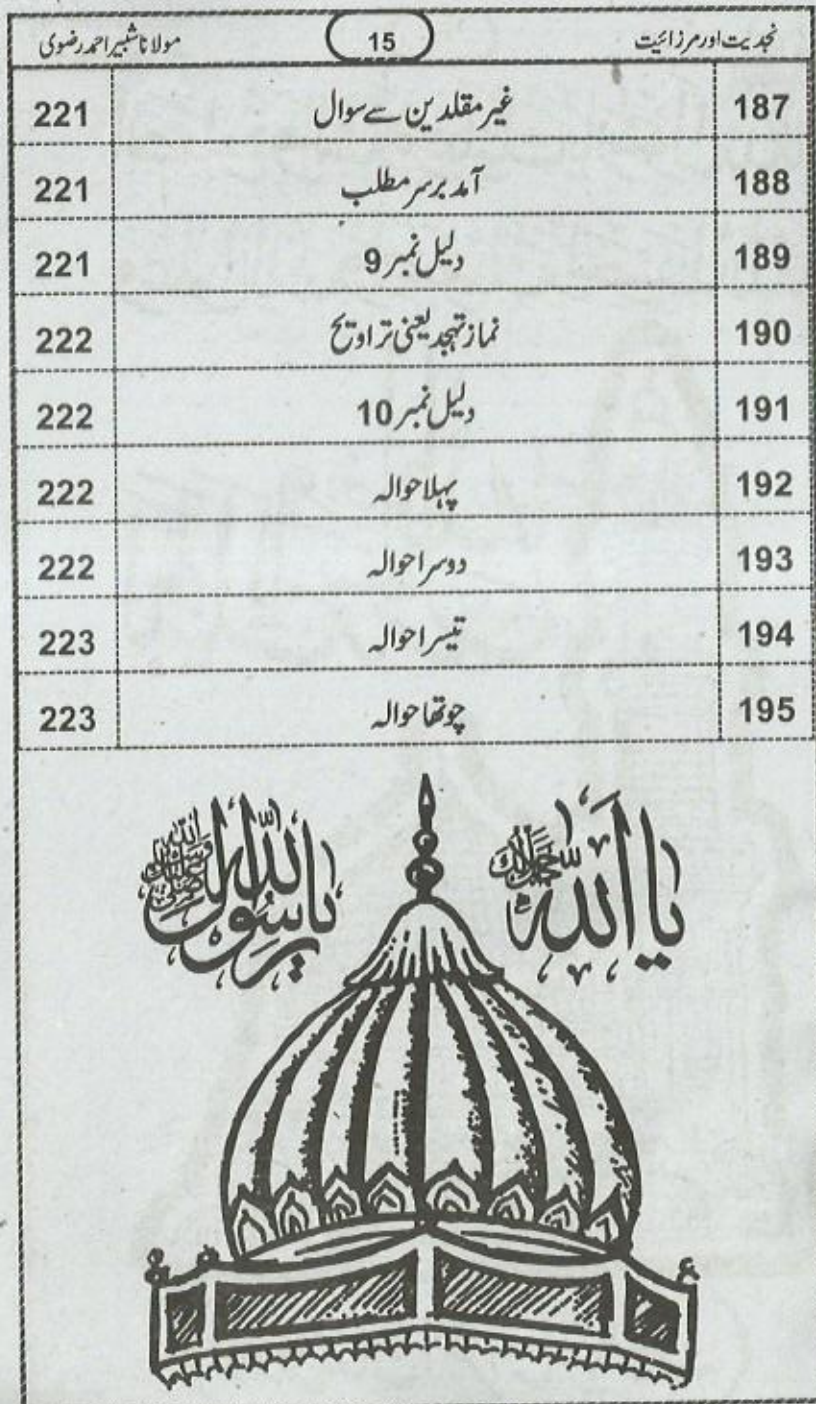 نجدیت اور مرزائیت 15 مولانا شبیر احمد رضوی
187 غیر مقلدین سے سوال 221
188 آمد برسر مطلب 221
189 دلیل نمبر 9 221
190 نماز تہجد یعنی تراویح 222
191 دلیل نمبر 10 222
192 پہلا حوالہ 222
193 دوسرا حوالہ 222
194 تیسرا حوالہ 223
195 چوتھا حوالہ 223
یا اللہ
یا رسول اللہ